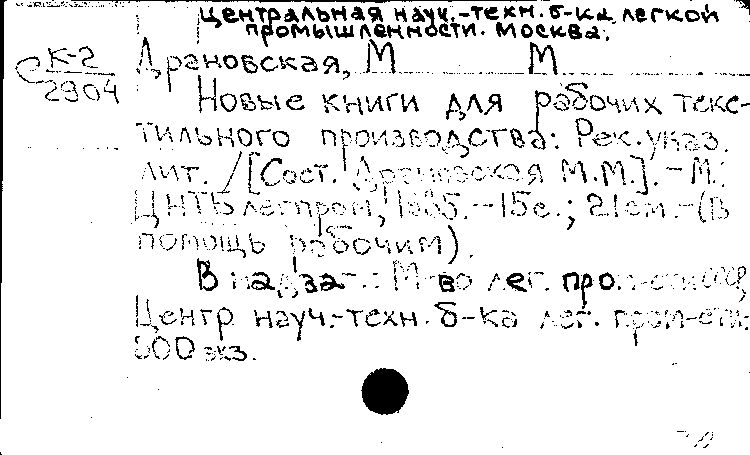 Центральная науч.-техн. б-ка легкой
промышленности. Москва.
К-2
С 2904
Драновская, М М
Новые книги для рабочих текс-
тильного производства: Рек. указ.
лит. / [Сост. Драновская М.М.]. - М.:
ЦНТБлегпром, 1985. - 15 с.; 21 см. - (В
помощь рабочим).
В надзаг.: М-во лег. пром-сти СССР,
Центр науч.-техн. б-ка лег. пром-сти.
500 экз.